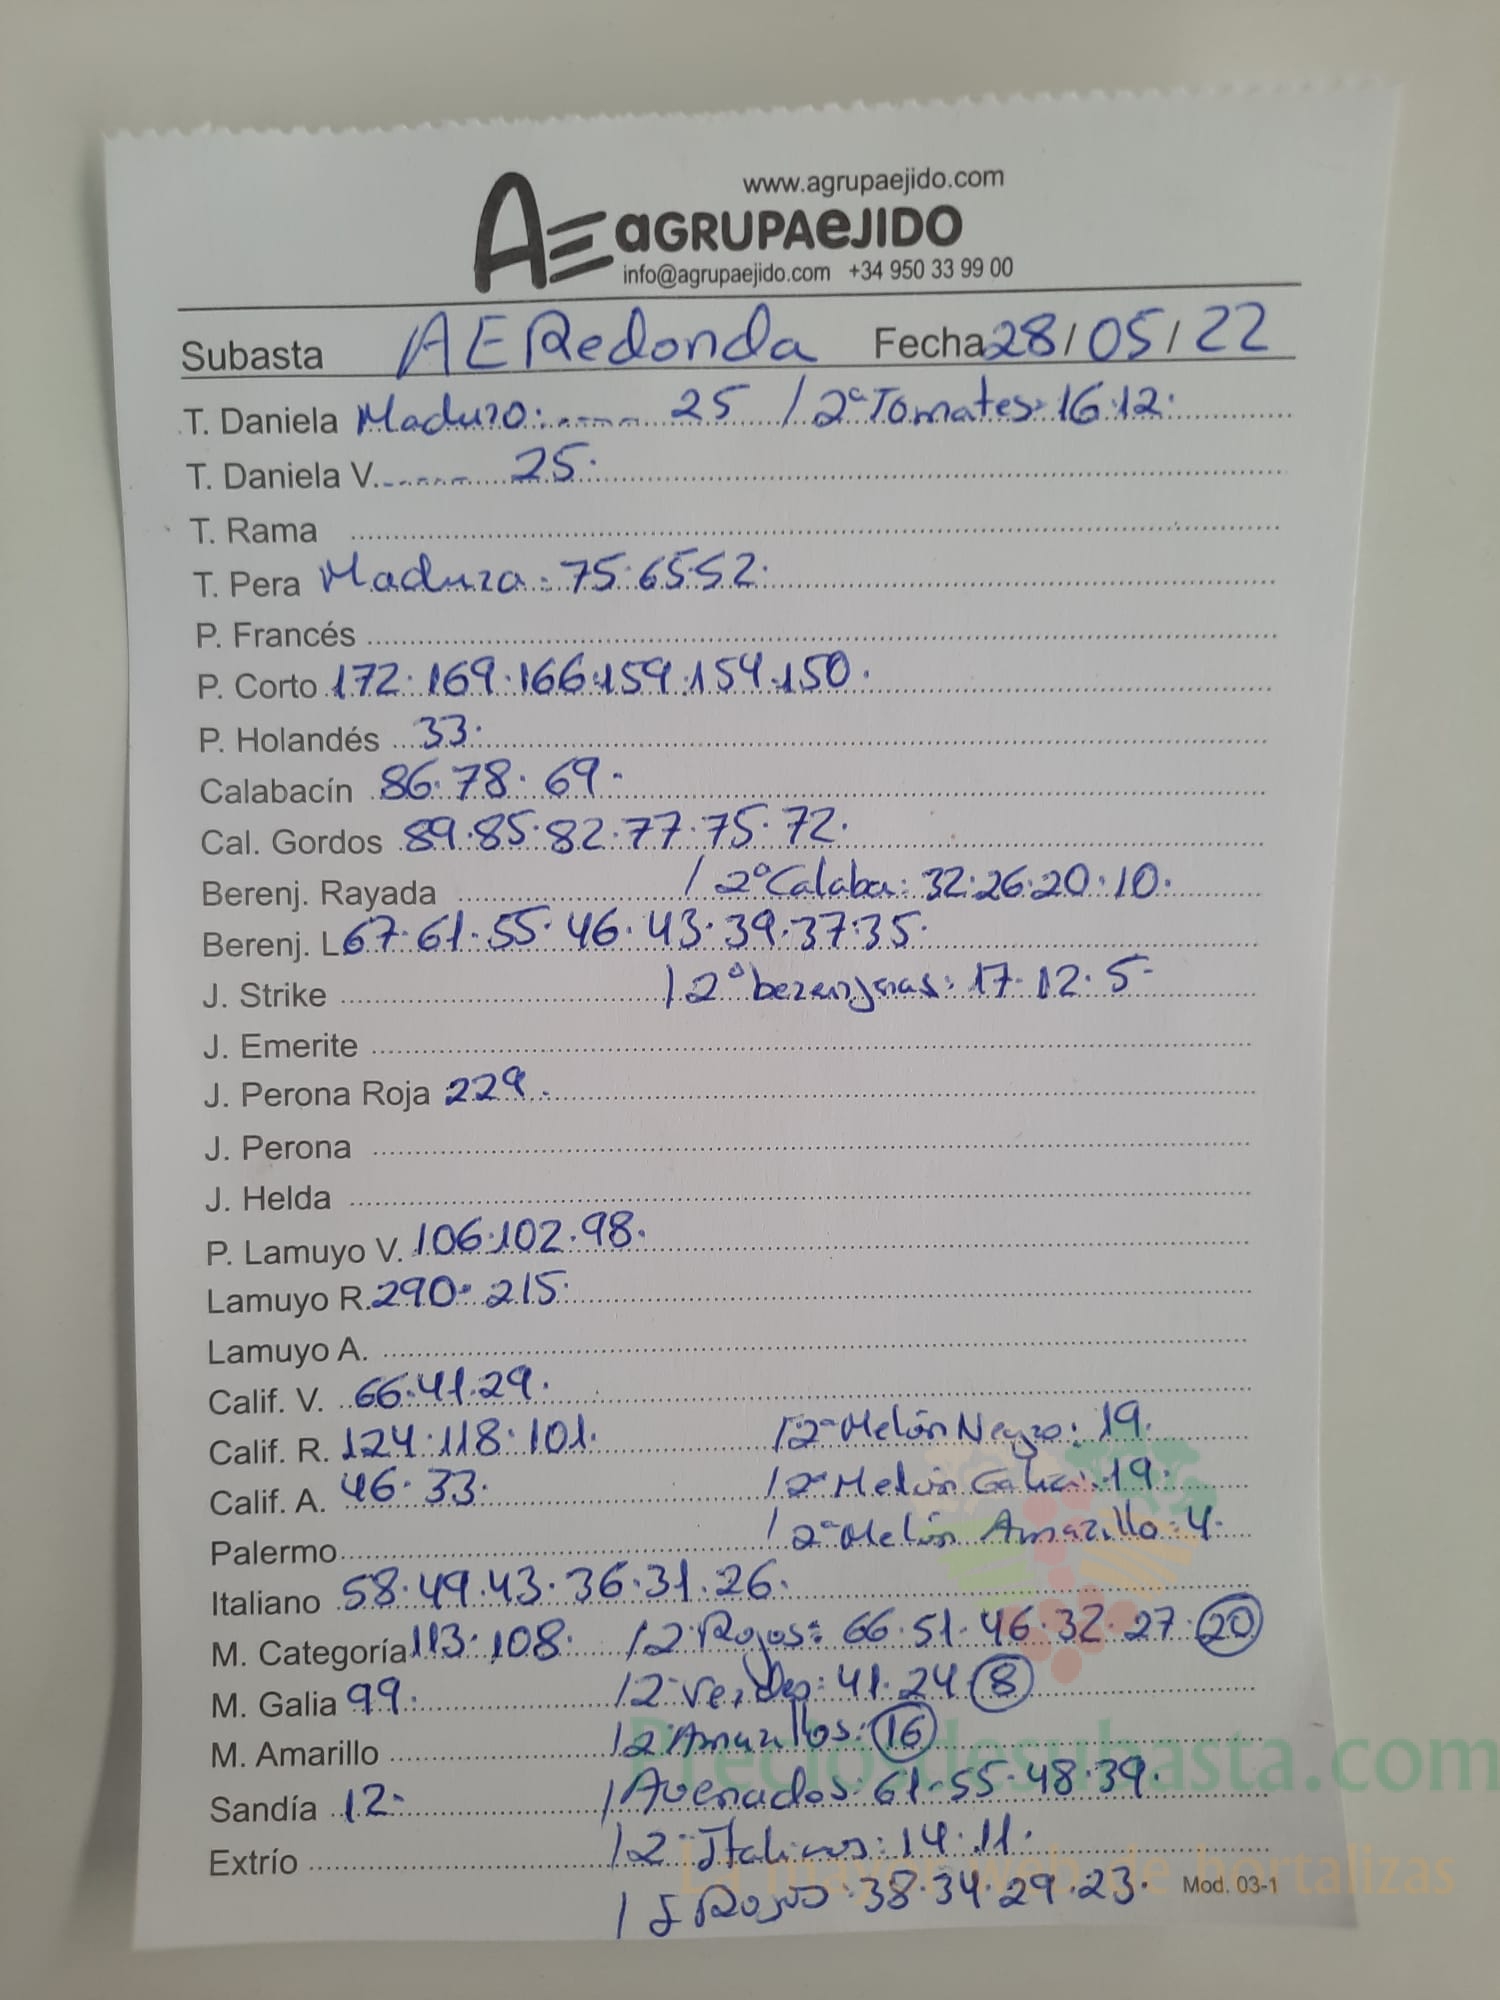 www.agrupaejido.com
AE aGRUPAeJIDO
info@agrupaejido.com +34 950 33 99 00
Subasta AE Redonda Fecha 28/05/22
T. Daniela Maduro: 25 / 2ª Tomates: 16·12·
T. Daniela V. 25·
T. Rama
T. Pera Madura: 75·65·52·
P. Francés
P. Corto 172·169·166·159·154·150·
P. Holandés 33·
Calabacín 86·78·69·
Cal. Gordos 89·85·82·77·75·72·
Berenj. Rayada / 2ª Calaba: 32·26·20·10·
Berenj. L 67·61·55·46·43·39·37·35·
J. Strike / 2ª berenjenas: 17·12·5·
J. Emerite
J. Perona Roja 229·
J. Perona
J. Helda
P. Lamuyo V. 106·102·98·
Lamuyo R. 290·215·
Lamuyo A.
Calif. V. 66·41·29·
Calif. R. 124·118·101· / 2ª Melón Negro: 19·
Calif. A. 46·33· / 2ª Melón Galia: 19·
Palermo / 2ª Melón Amarillo: 4·
Italiano 58·49·43·36·31·26·
M. Categoría 113·108· / 2ª Rojos: 66·51·46·32·27·20
M. Galia 99· / 2ª Verdes: 41·24·8
M. Amarillo / 2ª Amarillos: 16
Sandía 12· / Avenados: 61·55·48·39·
Extrío / 2ª Italianos: 14·11·
Rojos: 38·34·29·23·
Mod. 03-1
Preciosdesubasta.com
La mayor web de hortalizas